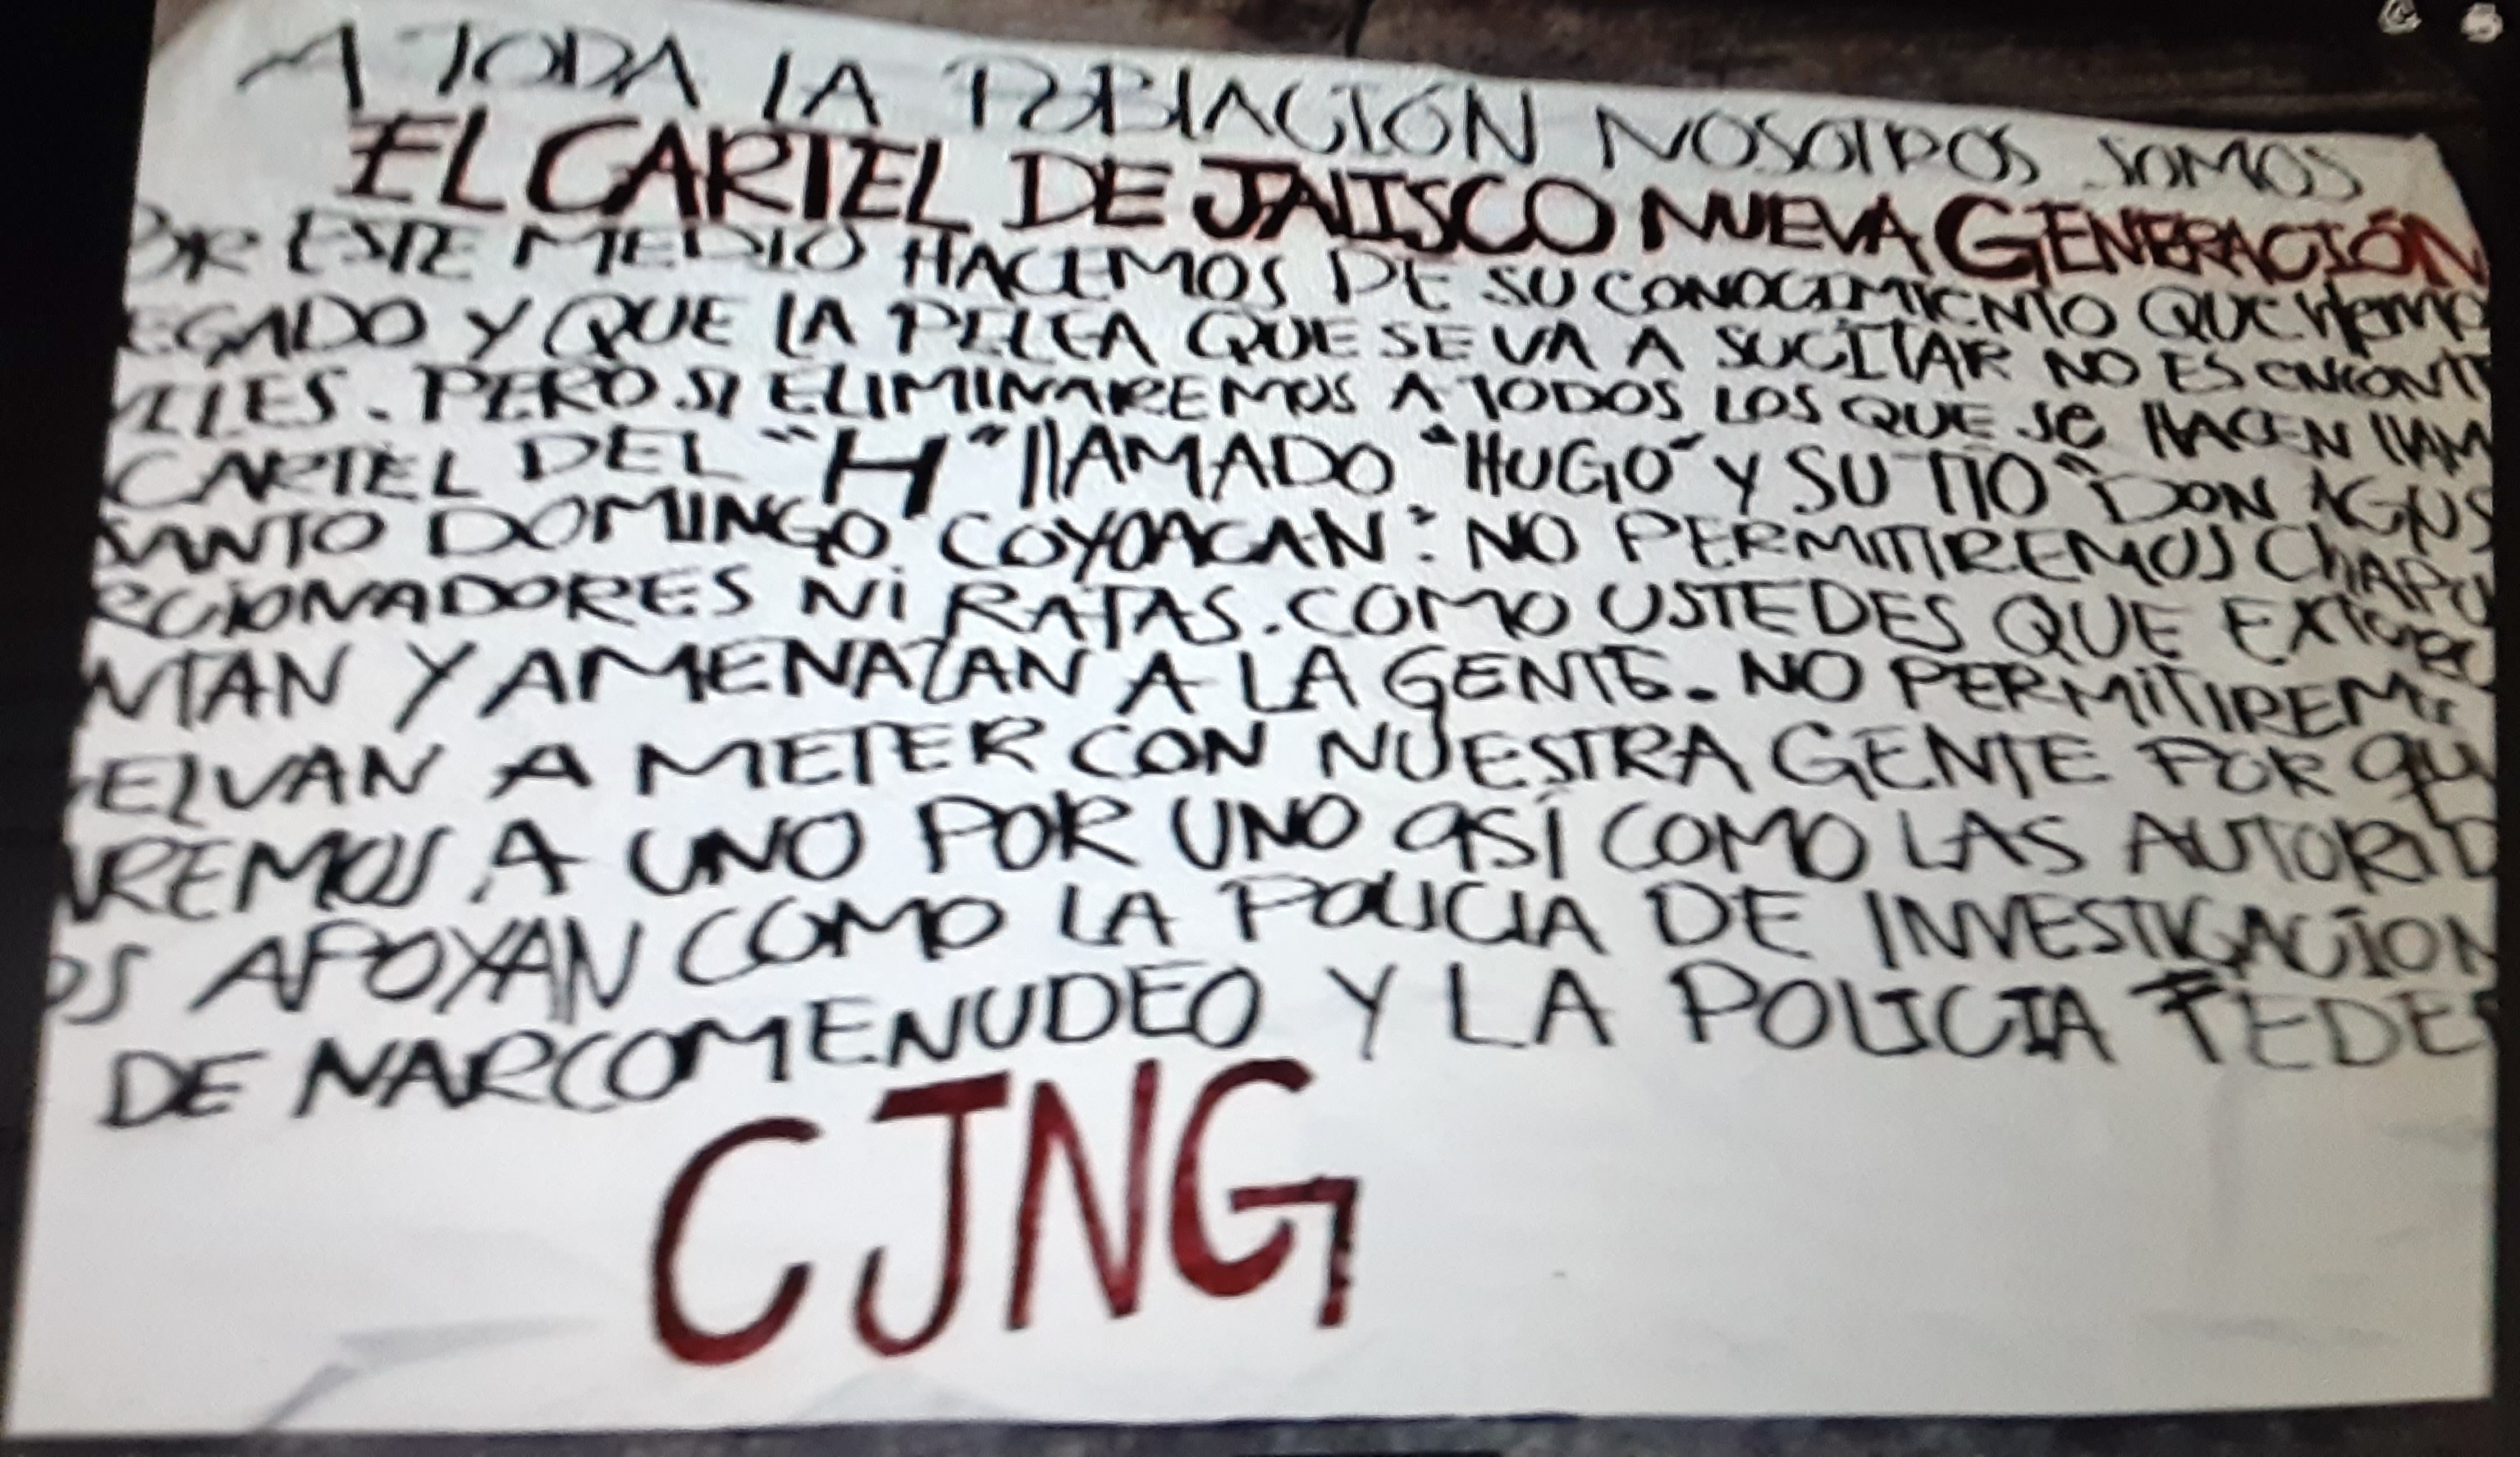 A TODA LA POBLACIÓN NOSOTROS SOMOS
EL CARTEL DE JALISCO NUEVA GENERACIÓN
OR ESTE MEDIO HACEMOS DE SU CONOCIMIENTO QUE HEMO
EGADO Y QUE LA PELEA QUE SE VA A SUCITAR NO ES ENCONT
VILES. PERO SI ELIMINAREMOS A TODOS LOS QUE SE HACEN LLAM
CARTEL DEL "H" LLAMADO "HUGO" Y SU TIO "DON AGUS
SANTO DOMINGO COYOACAN": NO PERMITIREMOS CHAPU
RCIONADORES NI RATAS. COMO USTEDES QUE
NTAN Y AMENAZAN A LA GENTE. NO PERMITIREM
ELVAN A METER CON NUESTRA GENTE POR QU
AREMOS A UNO POR UNO ASÍ COMO LAS AUTORID
OS APOYAN COMO LA POLICIA DE INVESTIGACION
DE NARCOMENUDEO Y LA POLICIA FEDE
CJNG